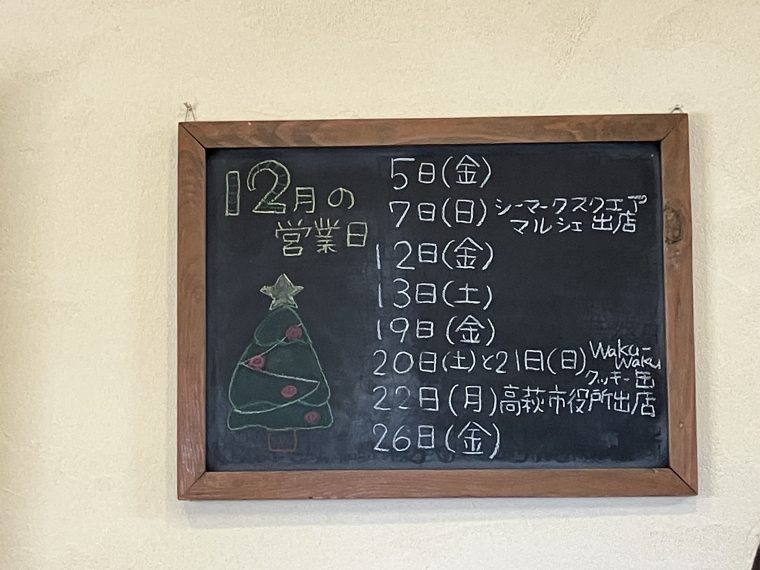 12月の
営業日
5日(金)
7日(日) シーマークスクエア
マルシェ出店
12日(金)
13日(土)
19日(金)
20日(土)と21日(日) Waku-
Waku
クッキー缶
22日(月)高萩市役所出店
26日(金)